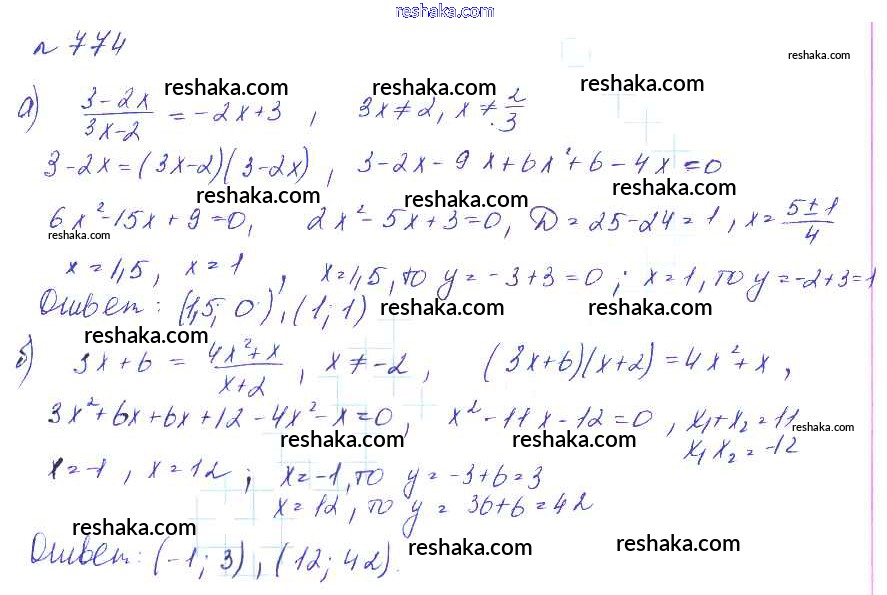 reshaka.com
№ 774
reshaka.com
а) (3-2x)/(3x-2) = -2x+3, 3x≠2, x≠2/3
reshaka.com reshaka.com reshaka.com
3-2x=(3x-2)(3-2x), 3-2x-9x+6x²+6-4x=0
reshaka.com reshaka.com reshaka.com
6x²-15x+9=0, 2x²-5x+3=0, D=25-24=1, x=(5±1)/4
reshaka.com
x=1,5, x=1, x=1,5, то y=-3+3=0; x=1, то y=-2+3=1
Ответ: (1,5; 0), (1; 1)
reshaka.com reshaka.com
reshaka.com
б) 3x+6 = (4x²+x)/(x+2), x≠-2, (3x+6)(x+2)=4x²+x,
3x²+6x+6x+12-4x²-x=0, x²-11x-12=0, x₁+x₂=11
reshaka.com reshaka.com reshaka.com
x₁x₂=-12
x=-1, x=12; x=-1, то y=-3+6=3
x=12, то y=36+6=42
reshaka.com
Ответ: (-1; 3), (12; 42).
reshaka.com reshaka.com